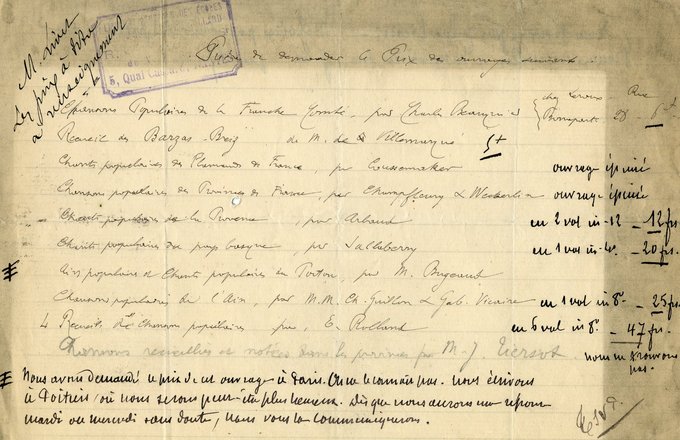 M. Livet
Les prix à titre
de renseignement
5, Quai
Prière de demander le Prix des ouvrages suivants :
Chansons Populaires de la Franche Comté, par Charles Beauquier { chez Leroux Rue Bonaparte 28 – 6
Recueil des Barzas-Breiz de M. de Villemarqué 5+
Chants populaires des Flamands de France, par Coussemaker ouvrage épuisé
Chansons populaires des Provinces de France, par Champfleury & Weckerlin ouvrage épuisé
Chants populaires de la Provence, par Arbaud en 2 vol in-12 – 12 frs
Chants populaires du pays basque, par Sallaberry en 1 vol in-4º – 20 frs.
Airs populaires et Chants populaires du Poitou, par M. Bujeaud
Chansons populaires de l'Ain, par M.M. Ch. Guillon & Gab. Vicaire en 1 vol in 8º – 25 frs
4 Recueils de Chansons populaires par E. Rolland en 6 vol in 8º – 47 frs.
Chansons recueillies et notées dans les par M. J. Tiersot nous ne trouvons pas.
Nous avons demandé le prix de cet ouvrage à Paris. On ne le connait pas. Nous écrivons
à Poitiers où nous serons peut-être plus heureux. Dès que nous aurons une réponse
mardi ou mercredi sans doute, nous vous la communiquerons.